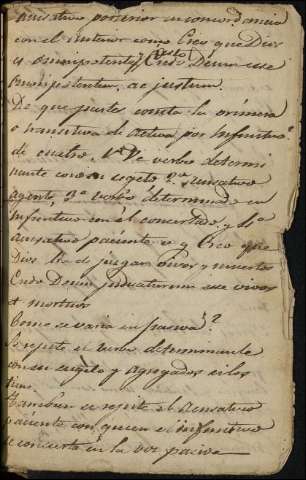 acusativo posterior en concordancia
con el mismo como Creo que Dios
es omnipotente y justo Credo Deum esse
omnipotentem, ac justum.
De que partes consta la primera
o transitiva de activa por Infinitivo?
de cuatro, 1ª De verbo determi
nante con su sugeto 2ª acusativo
agente, 3ª verbo determinado en
Infinitivo con él concertado, y 4ª
acusativo paciente v y Creo que
Dios ha de juzgar vivos y muertos
Credo Deum judicaturum esse vivos
et mortuos
Como se varia en pasiva?
Se repite el verbo determinante
con su sugeto y agregados si los
tiene.
tambien se repite el acusativo
paciente con quien el infinitivo
se concierta en la voz pasiva